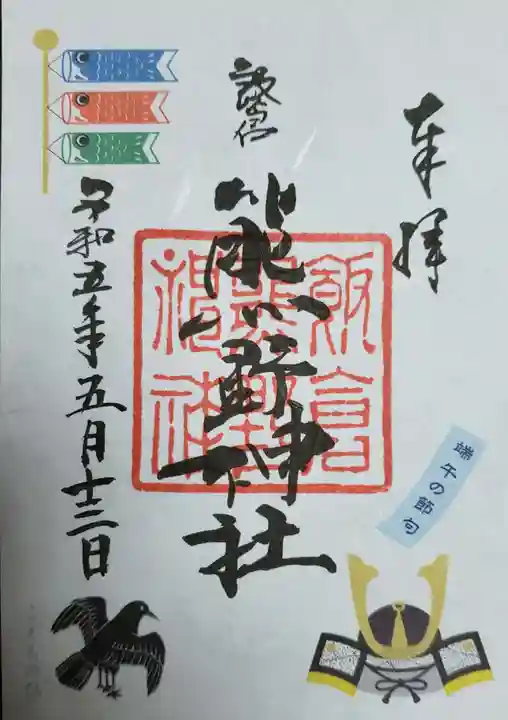 奉拝
飯倉
熊野
神社
熊野神社
令和五年五月十三日
端午の節句